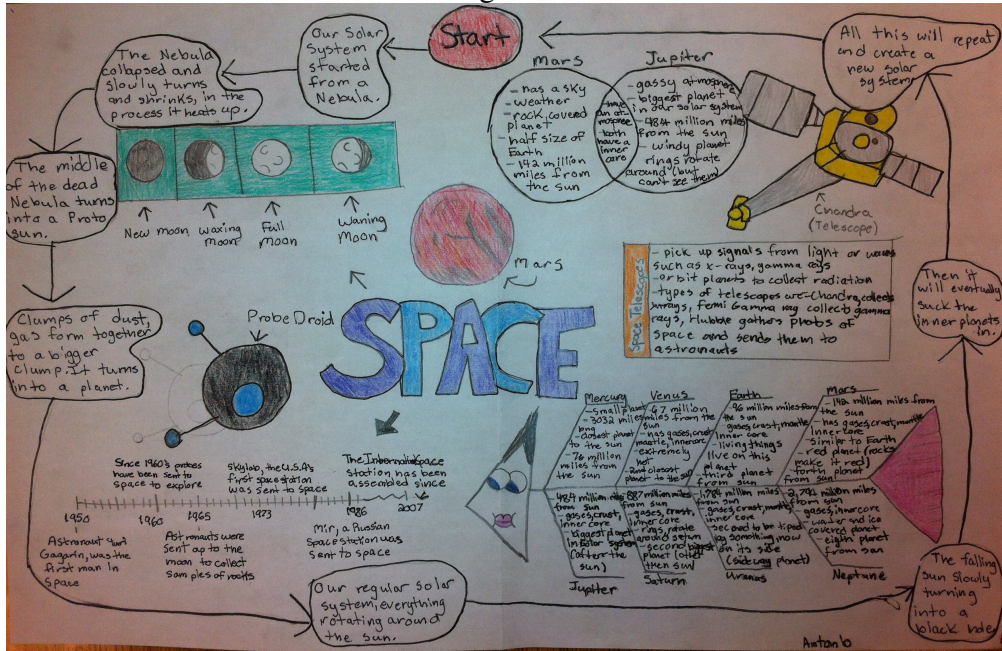 Start
Our Solar
System
started
from a
Nebula.
The Nebula
collapsed and
slowly turns
and shrinks, in the
process it heats up.
The middle
of the dead
Nebula turns
into a Proto
sun.
Clumps of dust,
gas form together
to a bigger
clump. It turns
into a planet.
Our regular solar
system, everything
rotating around
the sun.
The falling
sun slowly
turning
into a
black
Then it
will eventually
suck the
inner planets
in.
All this will repeat
and create a
new solar
system
New moon
waxing
moon
Full
Moon
Waning
Moon
Mars
Mars
- has a sky
- weather
- rock covered
planet
- half size of
Earth
- 142 million
miles from
the sun
have
an at-
mospree
- both
have a
inner
core
Jupiter
- gassy atmosphere
- biggest planet
in our solar system
- 484 million miles
from the sun
- windy planet
rings rotate
around (but
can't see them)
Chandra
(Telescope)
Space Telescopes
- pick up signals from light or waves
such as x-rays, gamma rays
- orbit planets to collect radiation
- types of telescopes are - Chandra, collects
xrays, Fermi Gamma ray collects gamma
rays, Hubble gathers photos of
space and sends them to
astronauts
SPACE
Probe Droid
Since 1960's probes
have been sent to
space to explore
Skylab, the U.S.A's
first space station
was sent to space
The International Space
Station has been
assembled since
1950
1960
1965
1973
1986
2007
Astronaut Yuri
Gagarin, was the
first man in
Space
Astronauts were
sent up to the
moon to collect
samples of rocks
Mir, a Russian
Space station was
sent to space
Mercury
- small planet
- 3032 miles
long
- closest planet
to the sun
- 76 million
miles from
the sun
Venus
- 67 million
miles from the
sun
- has gases, crust,
mantle, inner core
- extremely
hot
- 2nd closest
planet to the sun
Earth
- 96 million miles from
the sun
gases, crust, mantle
inner core
- living things
live on this
planet
- third planet
from sun
Mars
- 142 million miles from
the sun
- has gases, crust, mantle,
inner core
- similar to Earth
- red planet (rocks
make it red)
- forth planet
from sun
484 million miles
from sun
- gases, crust,
inner core
- biggest planet
in solar system
(after the
sun)
Jupiter
887 million miles
from sun
- gases, crust,
inner core
- rings, rotate
around saturn
- second biggest
planet (after
sun)
Saturn
- 1,784 million miles
from sun
- gases, crust, mantle
inner core
by something, now
on its side
(sideway planet)
Uranus
- 2,794 million miles
from sun
- gases, inner core
- water and ice
covered planet
- eighth planet
from sun
Neptune